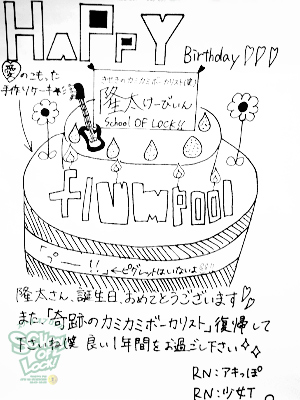 HAPPY
Birthday♡♡♡
愛のこもった
手作りケーキ
きせきのカミカミボーカリスト(笑)
隆太けーびぃん
School OF LOCK!!
flumpool
「プーー!!」←ピグレットはいないよ
隆太さん、誕生日、おめでとうございます♡
また、「奇跡のカミカミボーカリスト」復帰して
下さいね(笑) 良い1年間をお過ごし下さい✧
School
OF
Lock!
RN:アキっぽ
RN:少女T